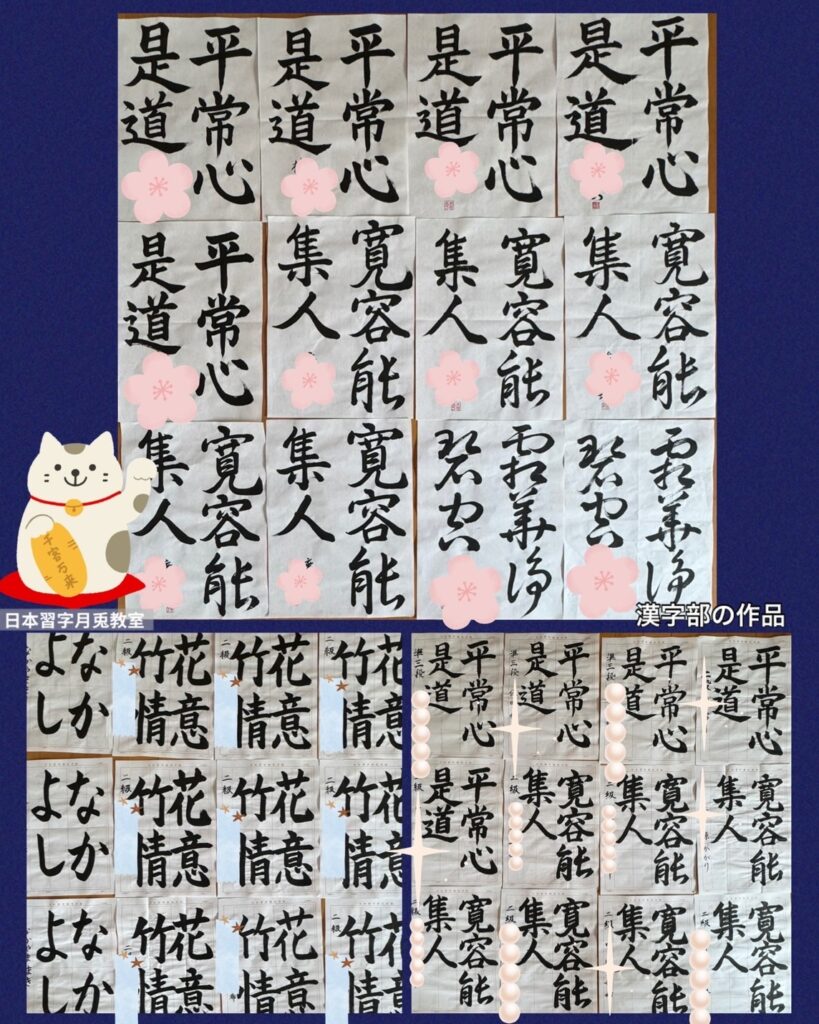 平常心
是道
平常心
是道
平常心
是道
平常心
是道
平常心
是道
寛容能
集人
寛容能
集人
寛容能
集人
寛容能
集人
寛容能
集人
千客万来
日本習字月兎教室
漢字部の作品
なか
よし
花意
竹情
二級
花意
竹情
二級
花意
竹情
二級
なか
よし
花意
竹情
二級
花意
竹情
二級
花意
竹情
二級
なか
よし
花意
竹情
花意
竹情
花意
竹情
二級
平常心
是道
準三段
平常心
是道
準三段
平常心
是道
準三段
平常心
是道
平常心
是道
寛容能
集人
寛容能
集人
寛容能
集人
寛容能
集人
寛容能
集人
二級
寛容能
集人
二級
寛容能
集人
二級